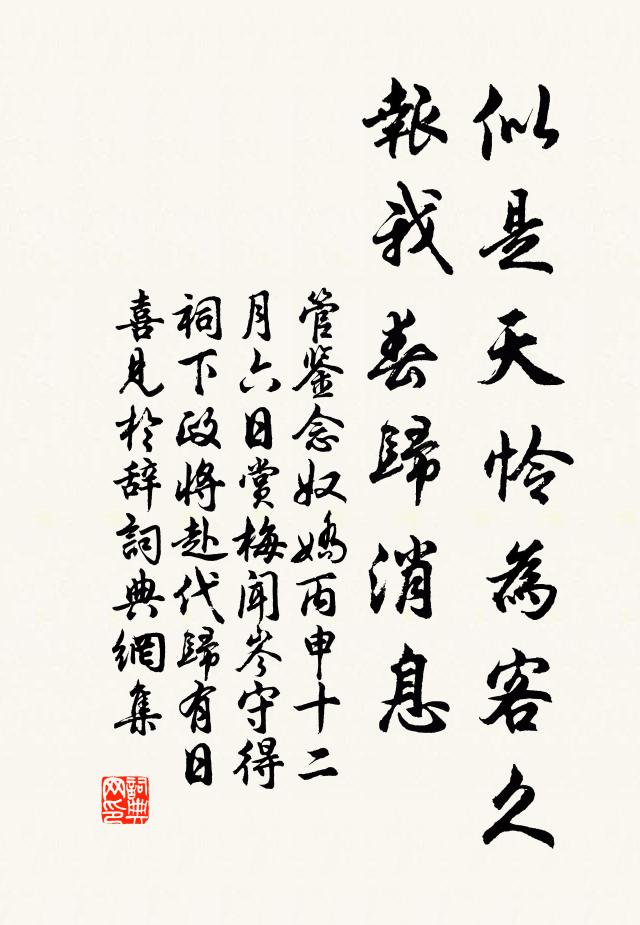 似是天怜為客久
報我春歸消息
管鉴念奴嬌丙申十二
月六日賞梅聞岑守得
祠下政将赴代歸有日
喜見於辞詞典網集
詞典网印